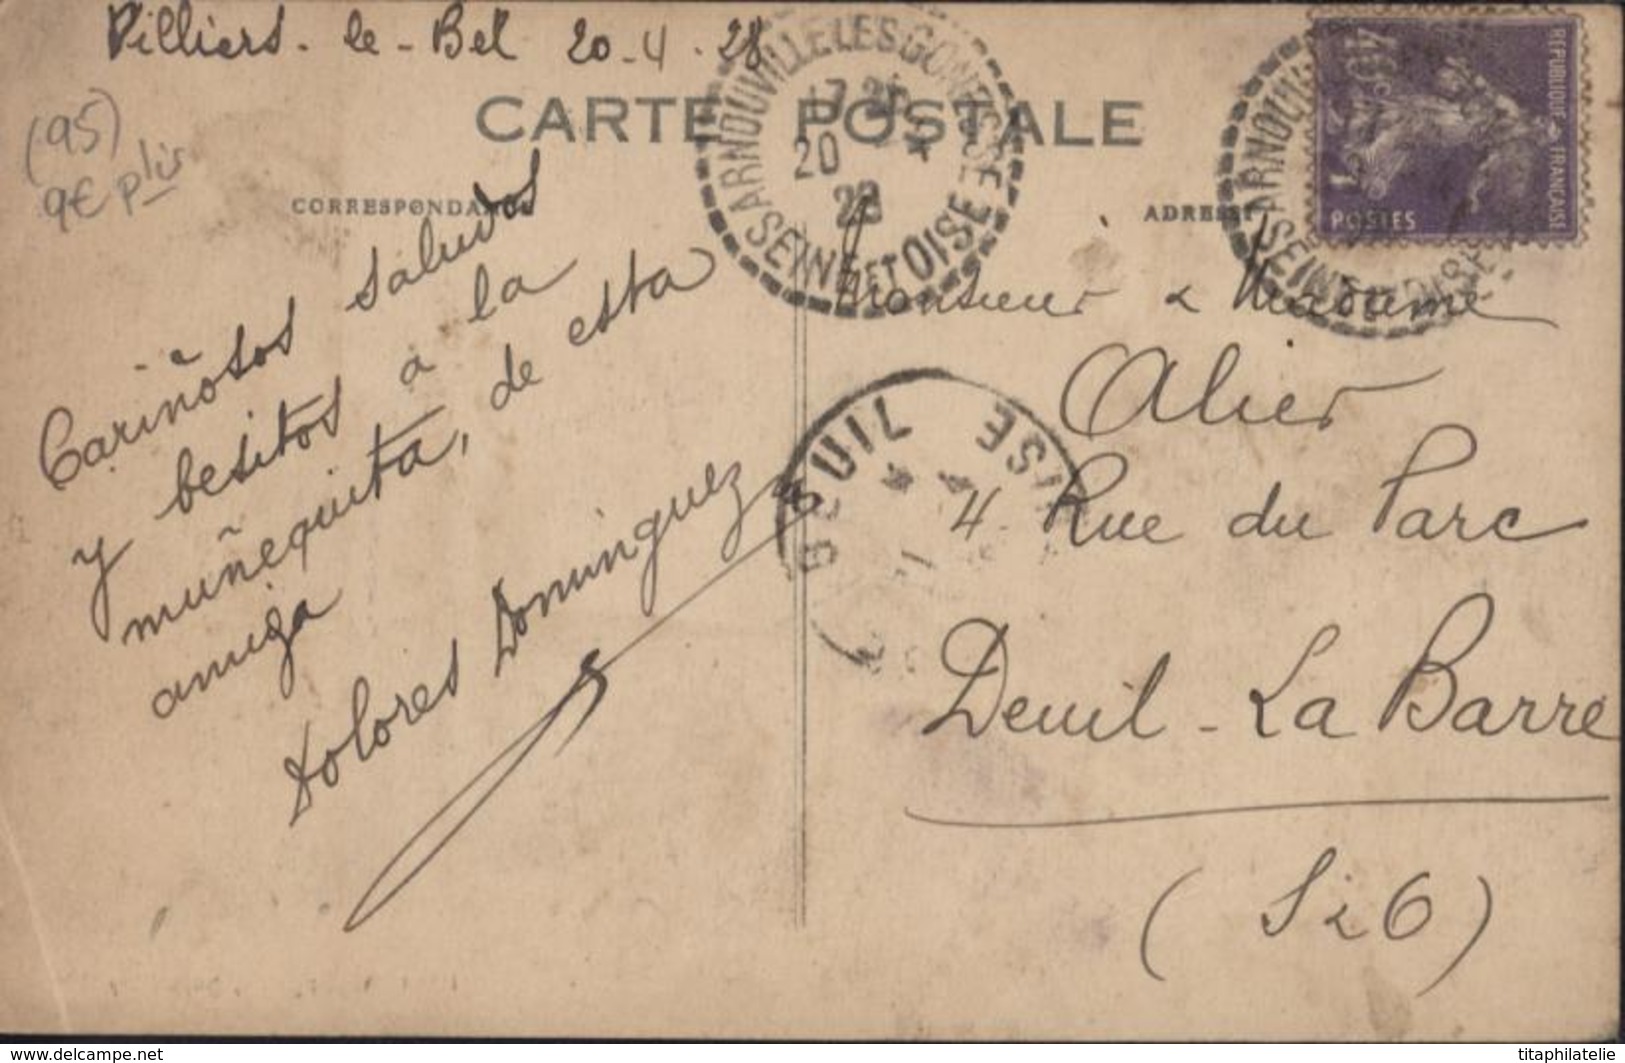 Villiers-le-Bel 20-4-28
(95)
9€ plis
CARTE POSTALE
CORRESPONDANCE
ADRESSE
ARNOUVILLE LES GONESSE
20
28
SEINE ET OISE
REPUBLIQUE FRANÇAISE
40c
POSTES
Cariñosos saludos
y besitos a la
muñequita, de esta
amiga
Dolores Dominguez
Monsieur & Madame
Alier
4 Rue du Parc
Deuil-La Barre
(S & O)
DEUIL
OISE
delcampe.net
titaphilatelie